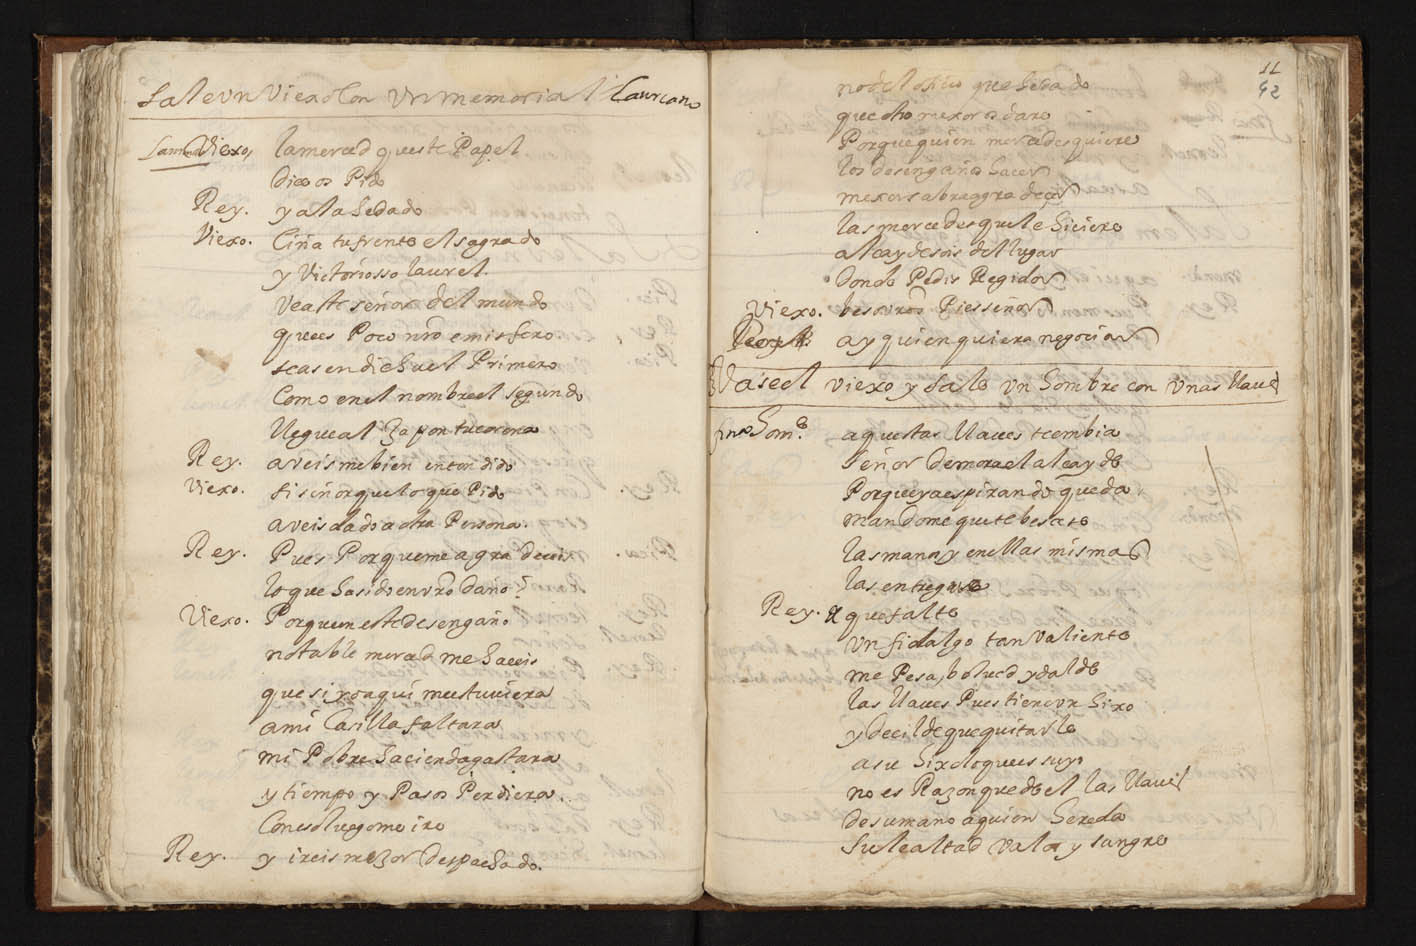 Sale vn Viexo Con vn memorial Laureano
Viexo, la merced que este Papel
dice os Pido
Rey. ya la he dado
Viexo. Ciña tu frente el sagrado
y Victoriosso laurel.
Veaste señor del mundo
que es Poco nro emisfero
seas en dicha el Primero
Como en el nombre el segundo
llegue al Zapon tu corona
Rey. aveis me bien entendido
Viexo. si señor que lo que Pido
aveis dado a otra Persona.
Rey. Pues Porque me agradeceis
lo que ha sido en vro daño?
Viexo. Porque en este desengaño
notable merced me haceis
que si yo aqui me estuuiera
a mi Casilla faltara
mi Pobre hacienda gastara
y tiempo y Pasos Perdiera
Con esto luego me ire
Rey. y ireis mejor despachado.
11
92
no del oficio que he dado
que otro mexor os dare
Porque quien mercedes quiere
los desengaños hacer
mexor sabra agradecer
las mercedes que le hiciere
alcayde sois del lugar
donde Pedis Regidor
Viexo. beso vros Pies señor
Rey. ay quien quiera negociar
Vase el viexo y sale vn hombre con vnas llaues
homb. aquestas llaues te embia
señor de mora el alcayde
Porque ya espirando queda
mandome que te besase
las manos y en ellas mismas
las entregase
Rey. que falte
vn fidalgo tan valiente
me Pesa, bolued y dalde
las llaues Pues tiene vn hixo
y decilde que quitarle
a su hixo lo que es suyo
no es Razon que de el las llaues
de su mano a quien hereda
su lealtad valor y sangre